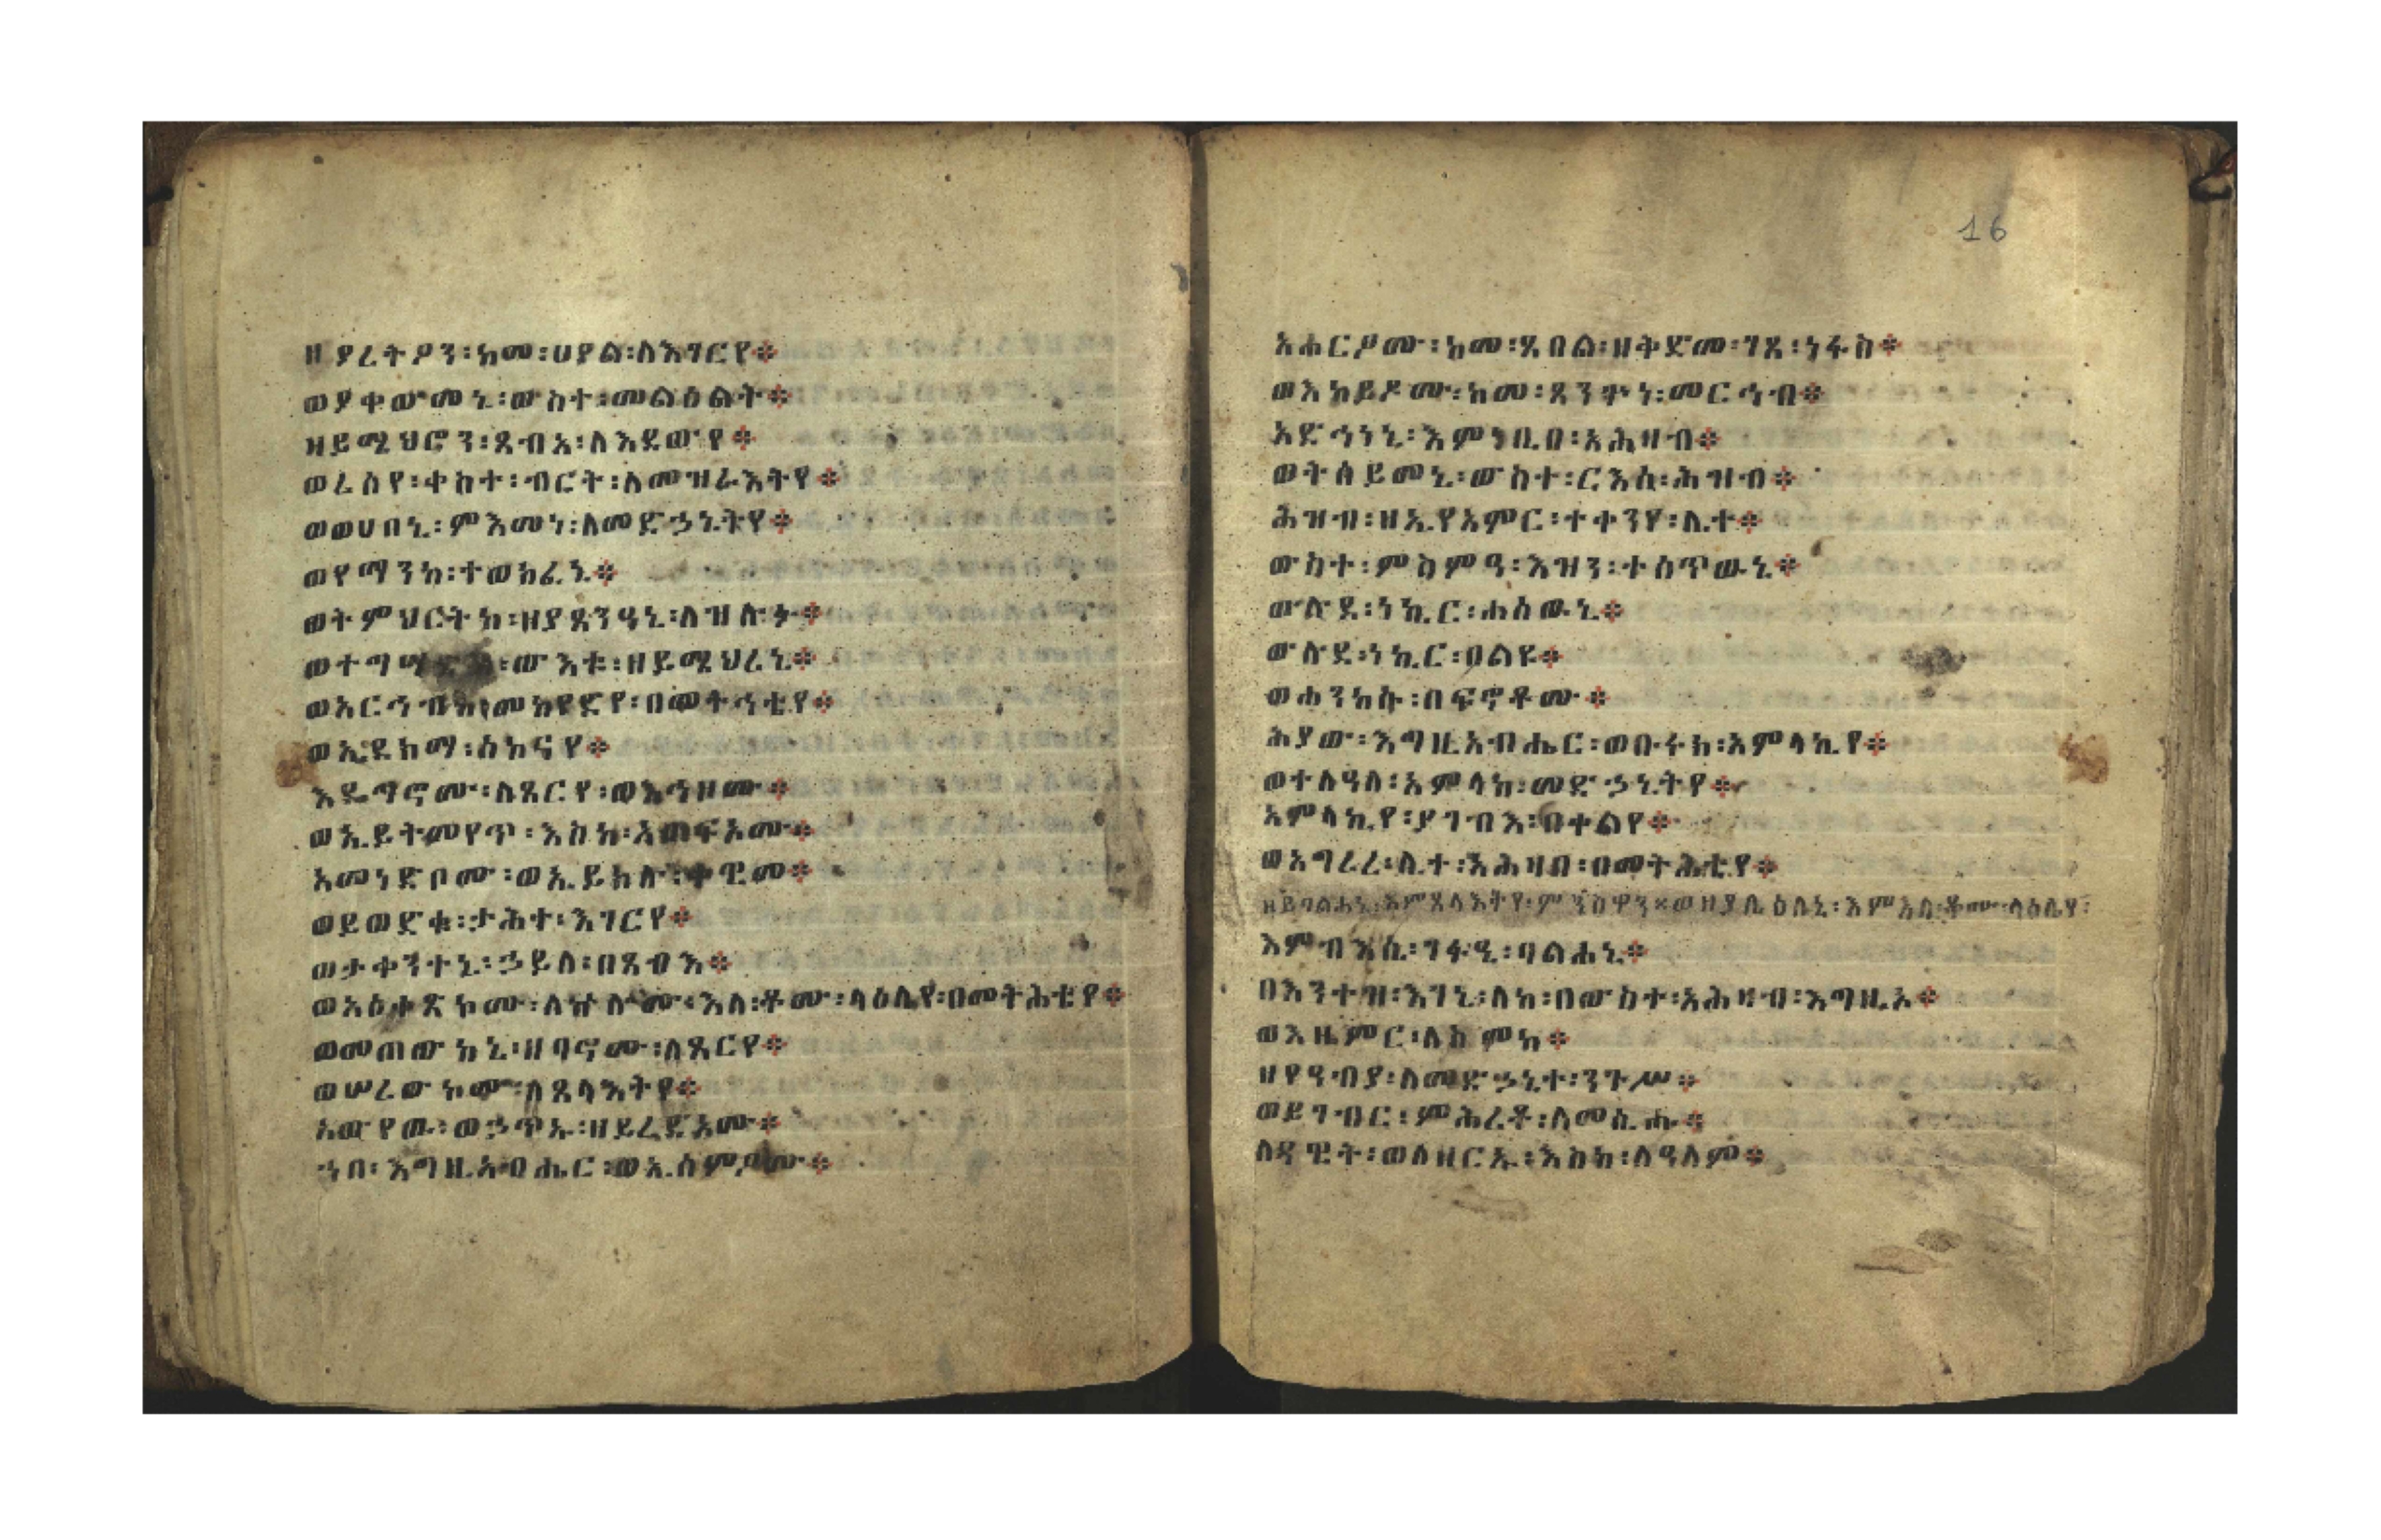 ዘያረትዖን፡ከመ፡ሀያል፡ለእገርየ፨
ወያቀውመኒ፡ውስተ፡መልዕልት፨
ዘይሜህሮን፡ጸብአ፡ለእደውየ፨
ወረሰየ፡ቀስተ፡ብርት፡ለመዝራእትየ፨
ወወሀበኒ፡ምእመነ፡ለመድኃኒትየ፨
ወየማንከ፡ተወክፈኒ፨
ወትምህርትከ፡ዘያጸንዓኒ፡ለዝሉፉ፨
ውእቱ፡ዘይሜህረኒ፨
ወአርኀብከ፡መከየድየ፡በመትኀቲየ፨
ወኢደክማ፡ሰኰናየ፨
እዴግኖሙ፡ለጸርየ፡ወእኅዘሙ፨
ወኢይትመየጥ፡እስከ፡አጠፍአሙ፨
አመነድቦሙ፡ወኢይክሉ፡ቀዊመ፨
ወይወድቁ፡ታሕተ፡እገርየ፨
ወታቀንተኒ፡ኃይለ፡በጸብእ፨
ወአዕቀጽኮሙ፡ለኵሎሙ፡እለ፡ቆሙ፡ላዕሌየ፡በመትሕቲየ፨
ወመጠውከኒ፡ዘባኖሙ፡ለጸርየ፨
ወሠረውኮሙ፡ለጸላእትየ፨
አውየዉ፡ወኃጥኡ፡ዘይረድአሙ፨
ኀበ፡እግዚአብሔር፡ወኢሰምዖሙ፨
አሐርፆሙ፡ከመ፡ጸበል፡ዘቅድመ፡ገጸ፡ነፋስ፨
ወእከይዶሙ፡ከመ፡ጸንጐነ፡መርኀብ፨
አድኅነኒ፡እምነቢበ፡አሕዛብ፨
ወትሰይመኒ፡ውስተ፡ርእሰ፡ሕዝብ፨
ሕዝብ፡ዘኢየአምር፡ተቀንየ፡ሊተ፨
ውስተ፡ምስምዓ፡እዝን፡ተሰጥዉኒ፨
ውሉደ፡ነኪር፡ሐሰዉኒ፨
ውሉደ፡ነኪር፡በልዩ፨
ወሐንከሱ፡በፍኖቶሙ፨
ሕያው፡እግዚአብሔር፡ወቡሩክ፡አምላኪየ፨
ወተለዓለ፡አምላከ፡መድኃኒትየ፨
አምላኪየ፡ያገብእ፡በቀልየ፨
ወአግረረ፡ሊተ፡አሕዛበ፡በመትሕቲየ፨
ዘይባልሐኒ፡እምጸላእትየ፡ምንስዋን፡ወዘያሌዕለኒ፡እምእለ፡ቆሙ፡ላዕሌየ፡
እምብእሲ፡ገፋዒ፡ባልሐኒ፨
በእንተዝ፡እገኒ፡ለከ፡በውስተ፡አሕዛብ፡እግዚኦ፨
ወእዜምር፡ለስምከ፨
ዘየዓብያ፡ለመድኃኒተ፡ንጉሥ፨
ወይገብር፡ምሕረቶ፡ለመሲሑ፨
ለዳዊት፡ወለዘርኡ፡እስከ፡ለዓለም፨
16